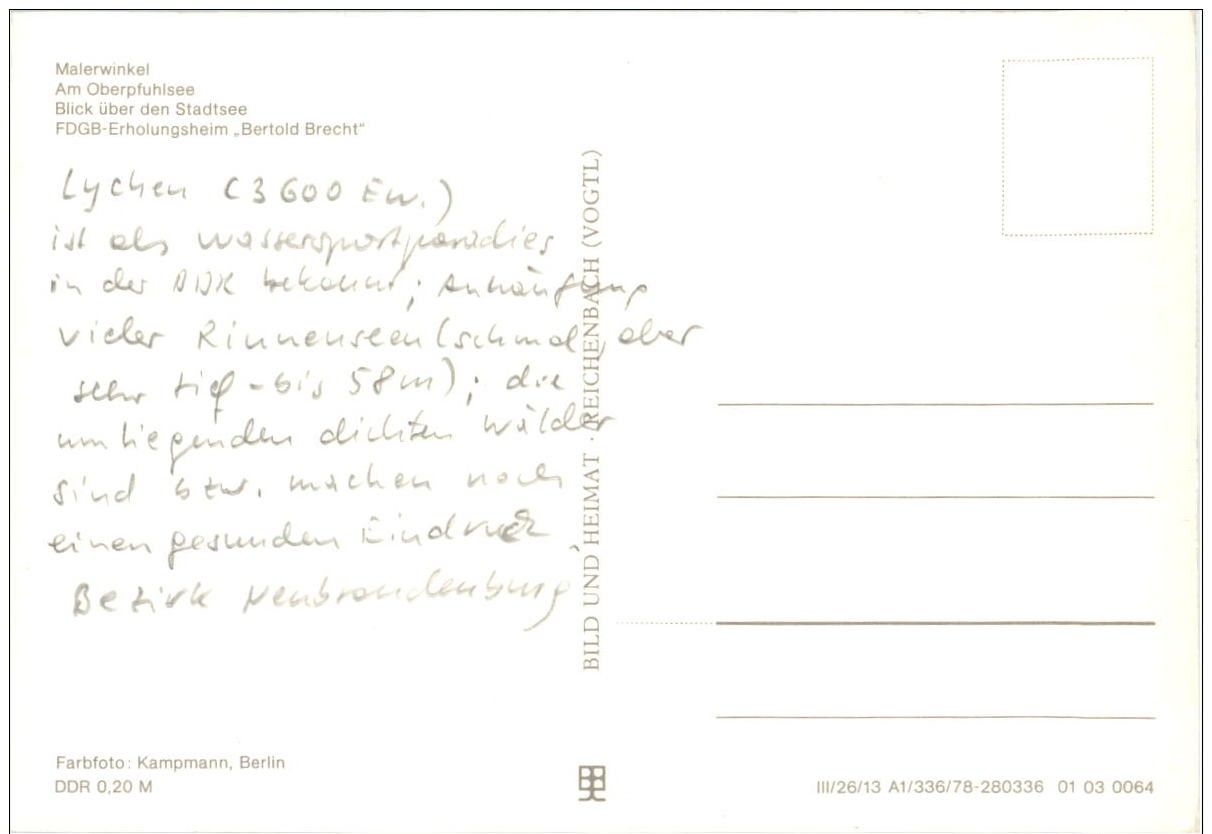 Malerwinkel
Am Oberpfuhlsee
Blick über den Stadtsee
FDGB-Erholungsheim „Bertold Brecht“
Lychen (3600 Ew.)
ist als Wassersportparadies
in der DDR bekannt; Anhäufung
vieler Rinnenseen (schmal, aber
sehr tief - bis 58m); die
umliegenden dichten Wälder
sind bzw. machen noch
einen gesunden Eindruck
Bezirk Neubrandenburg
BILD UND HEIMAT · REICHENBACH (VOGTL)
Farbfoto: Kampmann, Berlin
DDR 0,20 M
III/26/13 A1/336/78-280336 01 03 0064